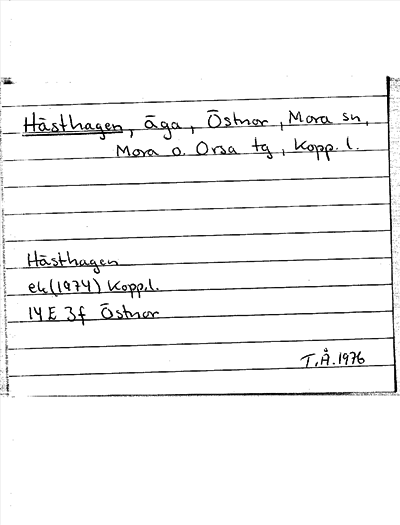 Hästhagen, äga, Östnor, Mora sn,
Mora o. Orsa tg, Kopp. l.
Hästhagen
ek (1974) Kopp.l.
14E 3f Östnor
T.Å. 1976